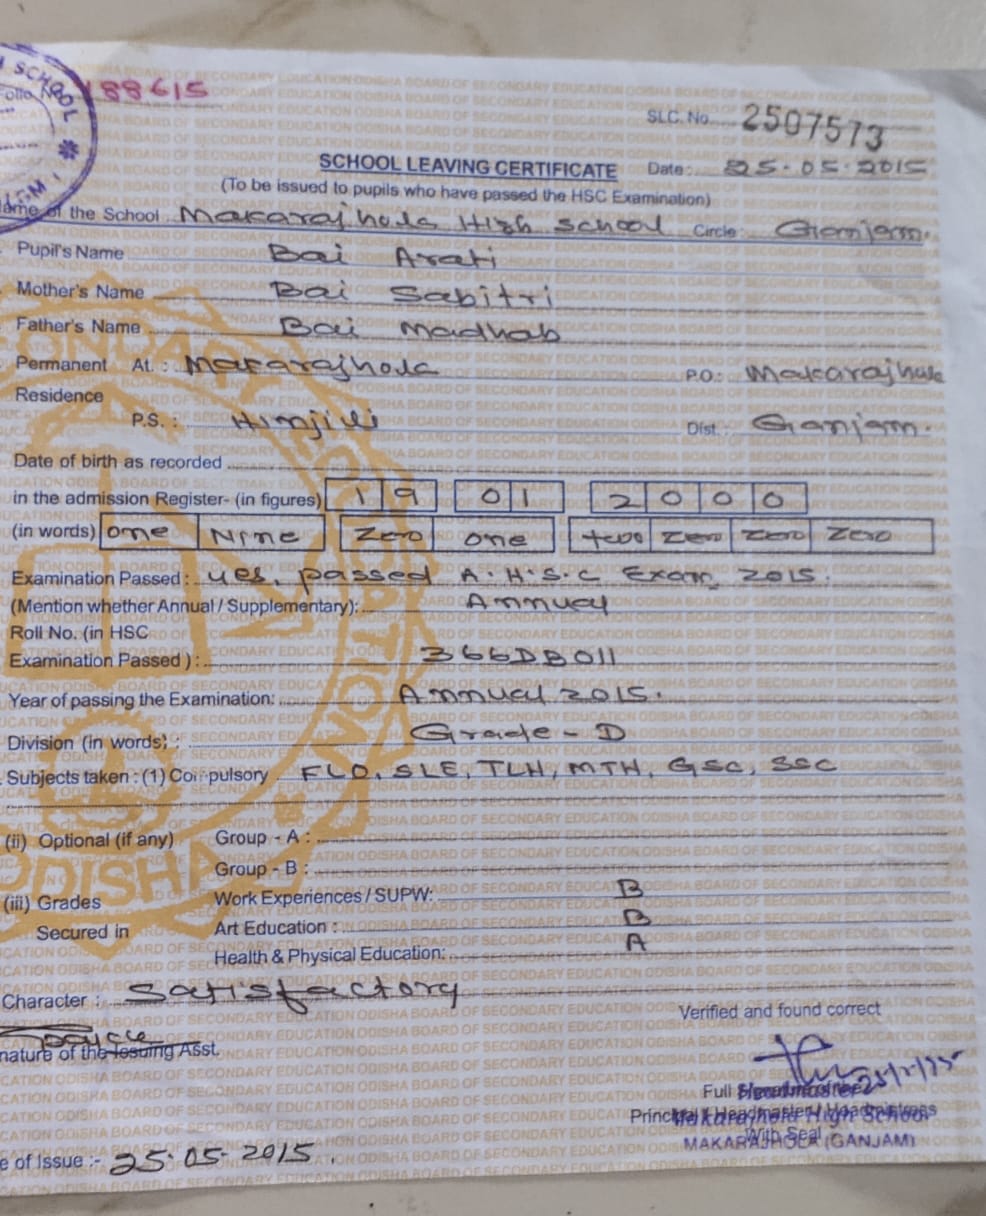 SCHOOL
188615
SLC. No. 2507573
SCHOOL LEAVING CERTIFICATE Date: 25-05-2015
(To be issued to pupils who have passed the HSC Examination)
Name of the School Makarajhola High School Circle Ganjam.
Pupil's Name Bai Arati
Mother's Name Bai Sabitri
Father's Name Bai Madhab
Permanent At. : Makarajhola P.O: Makarajhola
Residence
P.S. : Hinjili Dist. Ganjam.
Date of birth as recorded
in the admission Register- (in figures) 1 9 0 1 2 0 0 0
(in words) one Nine Zero one two Zero Zero Zero
Examination Passed : yes, passed A.H.S.C Exam 2015.
(Mention whether Annual / Supplementary): Annual
Roll No. (in HSC
Examination Passed ) : 366DB011
Year of passing the Examination: Annual 2015.
Division (in words) : Grade - D
Subjects taken : (1) Compulsory FLO, SLE, TLH, MTH, GSC, SSC
(ii) Optional (if any) Group - A :
Group - B :
(iii) Grades Work Experiences / SUPW: B
Secured in Art Education : B
Health & Physical Education: A
Character : Satisfactory
Verified and found correct
nature of the Issuing Asst.
Full
Principal / Headmaster / Headmistress
Makarajhola High School
With Seal
MAKARAJHOLA (GANJAM)
e of Issue :- 25-05-2015.